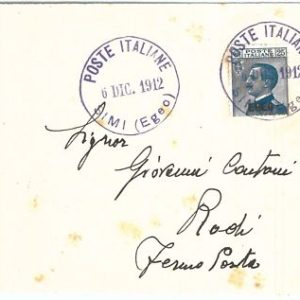 POSTE ITALIANE
6 DIC. 1912
SIMI (Egeo)
POSTE ITALIANE
1912
Egeo)
Signor
Giovanni Cantoni
Rodi
Fermo Posta